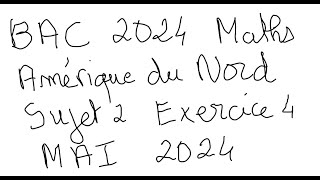 BAC 2024 Maths
Amérique du Nord
Sujet 2 Exercice 4
MAI 2024